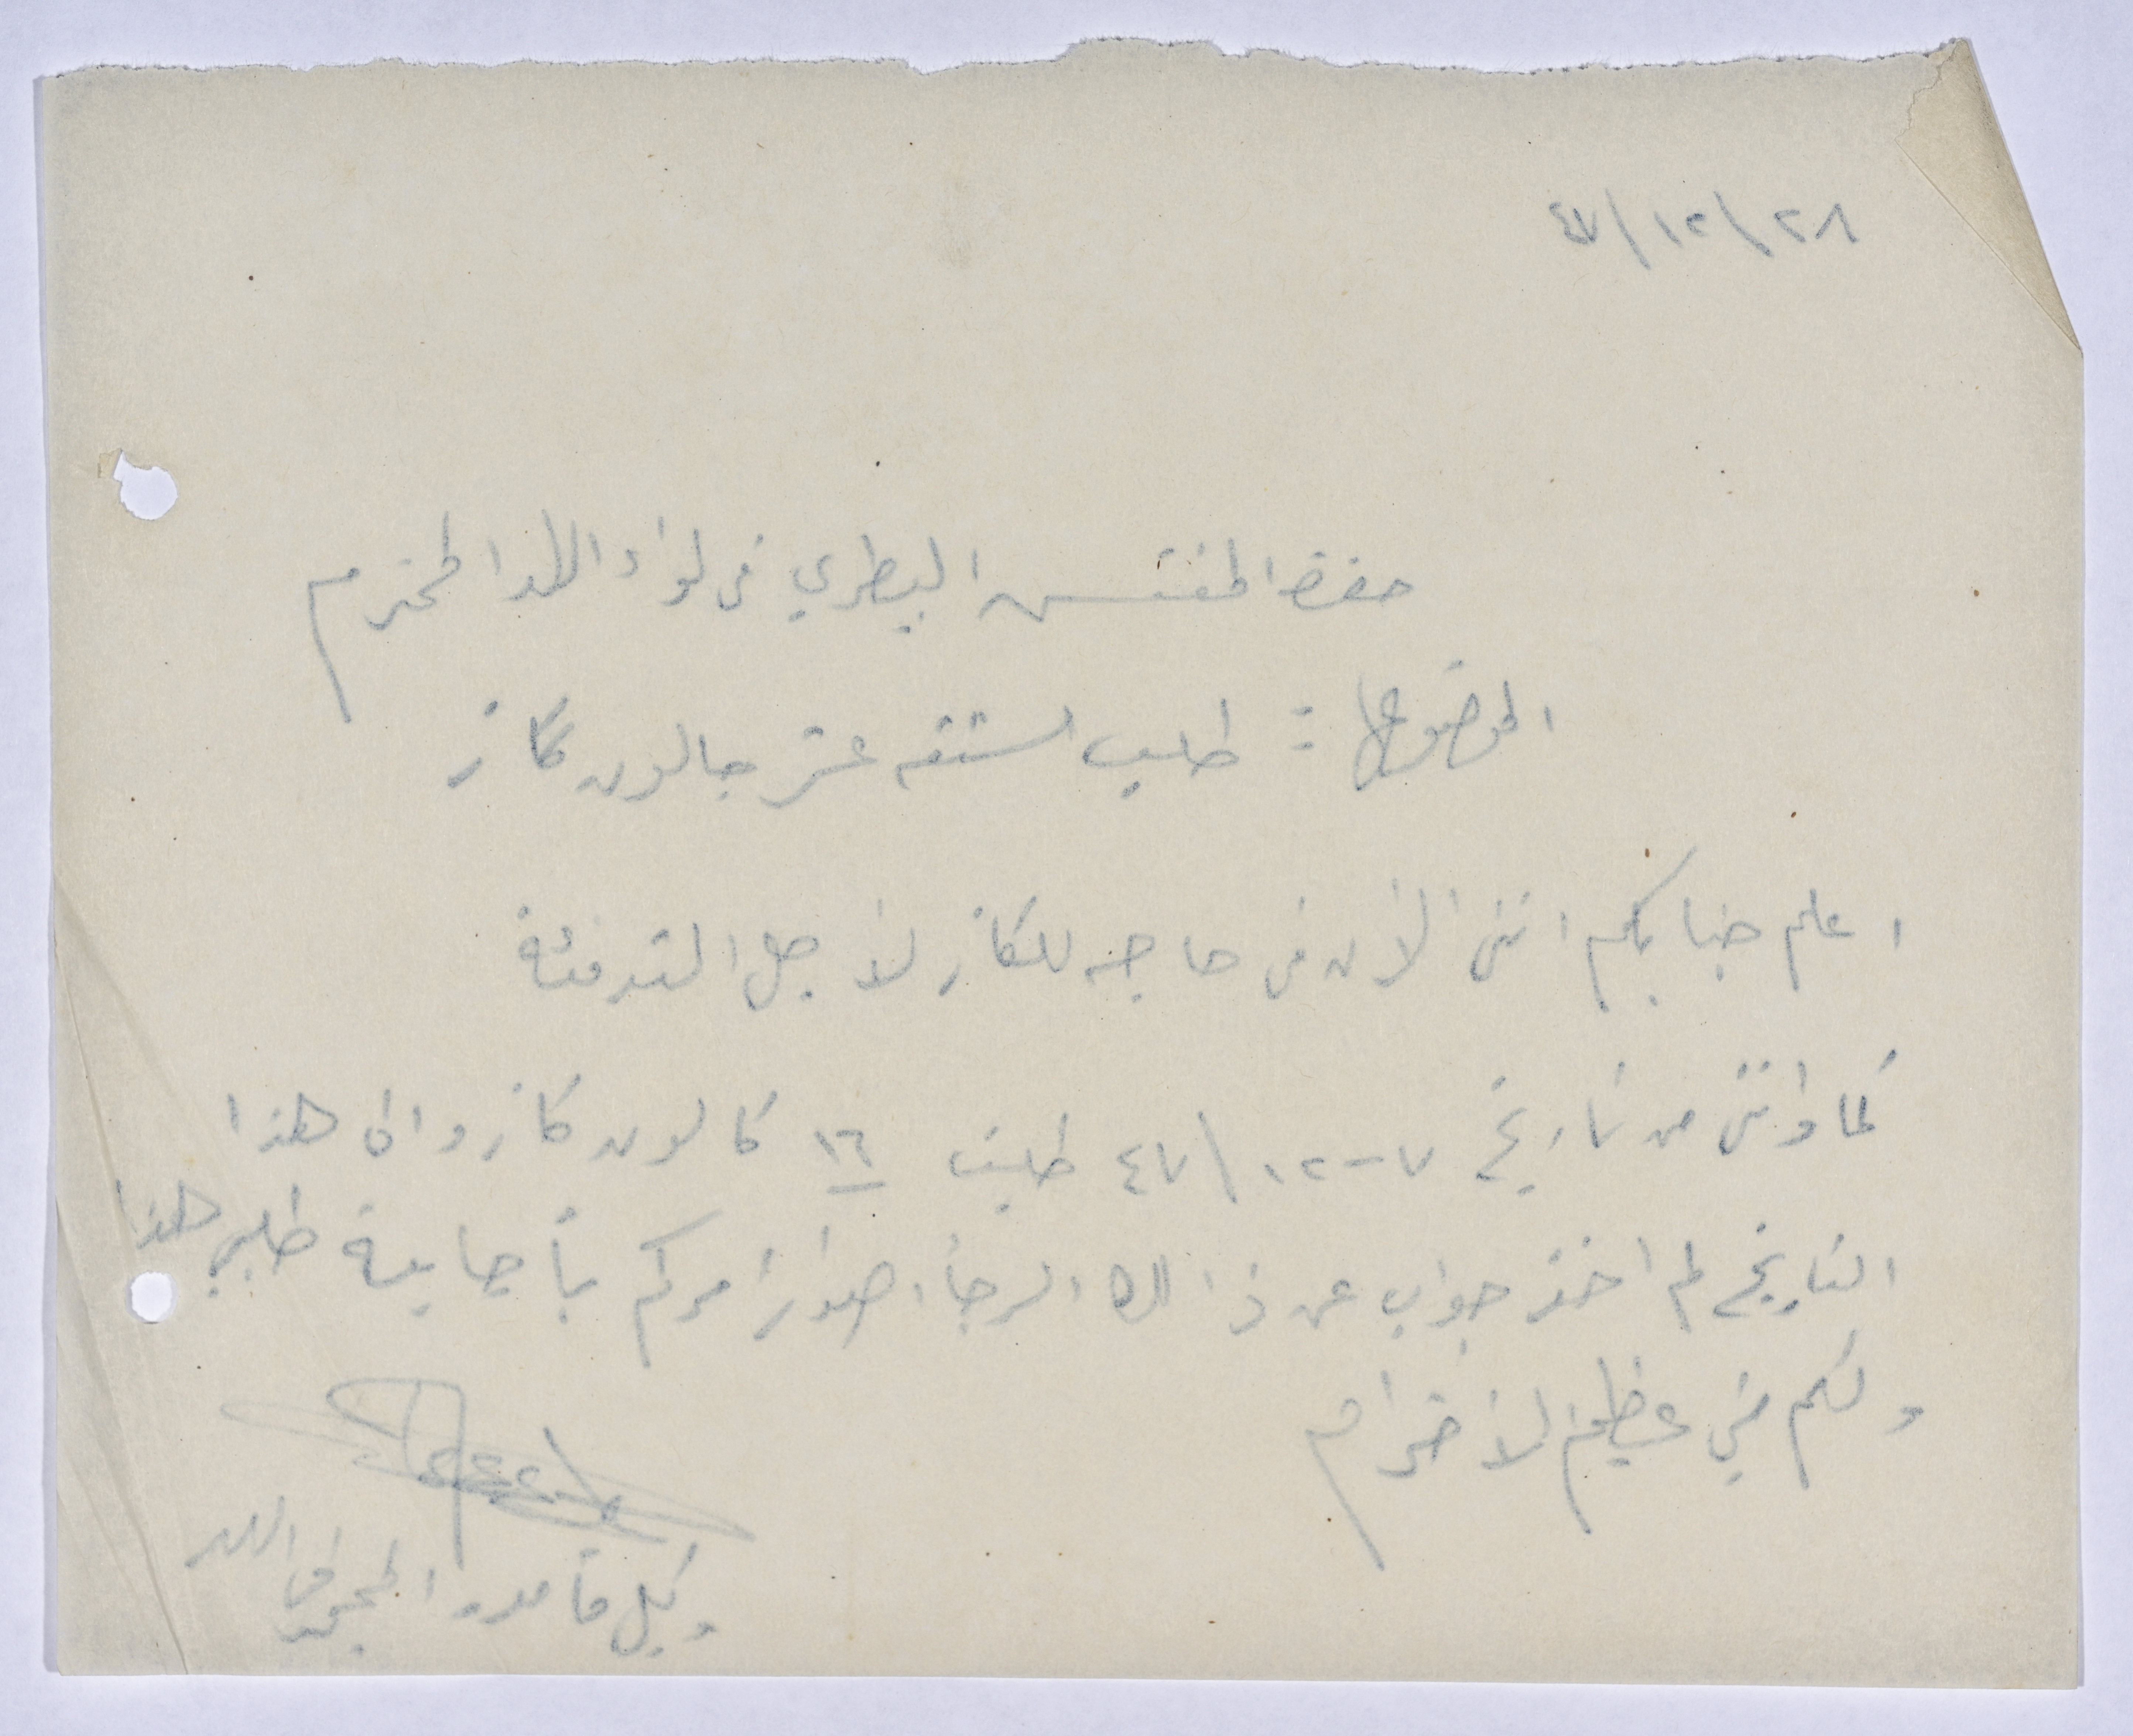 ٢٨/١٢/٤٧
حضرة المفتش البيطري في لواء اللد المحترم
الموضوع : طلب ستة عشر جالون كاز
اعلم جنابكم انني الأن في حاجه للكاز لأجل التدفئة
كما وانني من تاريخ ٧-١٢/٤٧ طلبت ١٦ كالون كاز والى هذا
التاريخ لم اخذ جواب عن ذالك الرجأ اصدار امركم بأجابة طلبي هذا
ولكم مني عظيم الأحترام
وكيل مأمور المحجر في اللد